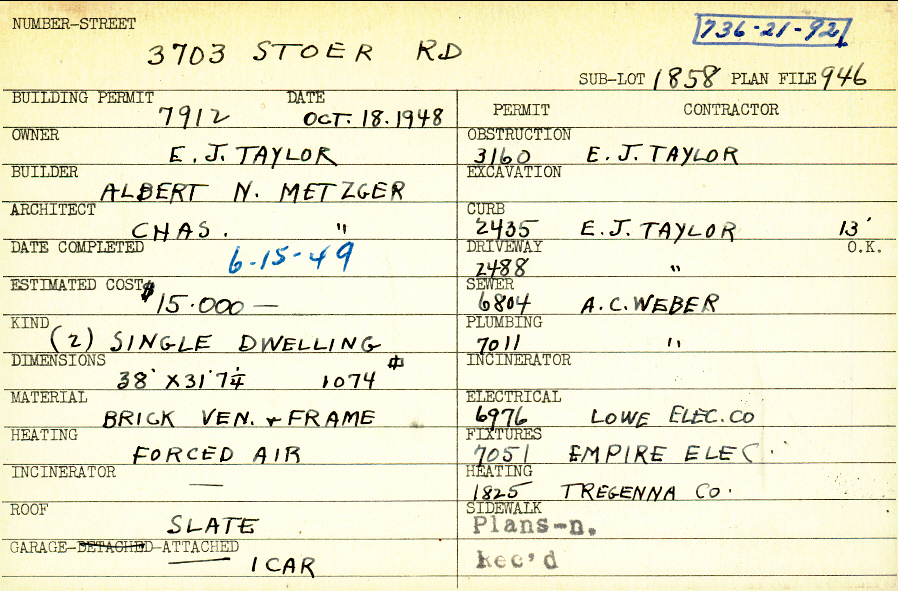 NUMBER-STREET
736-21-92
3703 STOER RD
SUB-LOT 1858 PLAN FILE 946
BUILDING PERMIT DATE
7912 OCT. 18. 1948
OWNER
E. J. TAYLOR
BUILDER
ALBERT N. METZGER
ARCHITECT
CHAS. "
DATE COMPLETED
6-15-49
ESTIMATED COST
$15.000 —
KIND
(2) SINGLE DWELLING
DIMENSIONS
38' X 31' 7¼ 1074 #
MATERIAL
BRICK VEN. + FRAME
HEATING
FORCED AIR
INCINERATOR
—
ROOF
SLATE
GARAGE-DETACHED-ATTACHED
1 CAR
PERMIT CONTRACTOR
OBSTRUCTION
3160 E. J. TAYLOR
EXCAVATION
CURB
2435 E. J. TAYLOR 13'
DRIVEWAY O.K.
2488 "
SEWER
6804 A. C. WEBER
PLUMBING
7011 "
INCINERATOR
ELECTRICAL
6976 LOWE ELEC. CO
FIXTURES
7051 EMPIRE ELEC.
HEATING
1825 TREGENNA CO.
SIDEWALK
Plans-n.
Rec'd